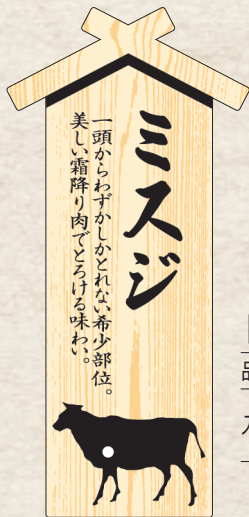 ミスジ
一頭からわずかしかとれない希少部位。
美しい霜降り肉でとろける味わい。